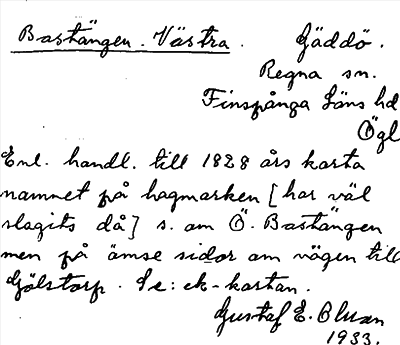 Bastängen. Västra. Gäddö.
Regna sn.
Finspånga Läns hd
Ögl
Enl. handl. till 1828 års karta
namnet på hagmarken [har väl
slagits då] s. om Ö. Bastängen
men på ömse sidor om vägen till
Gölstorp. Se: ek-kartan.
Gustaf E. Bluan
1933.